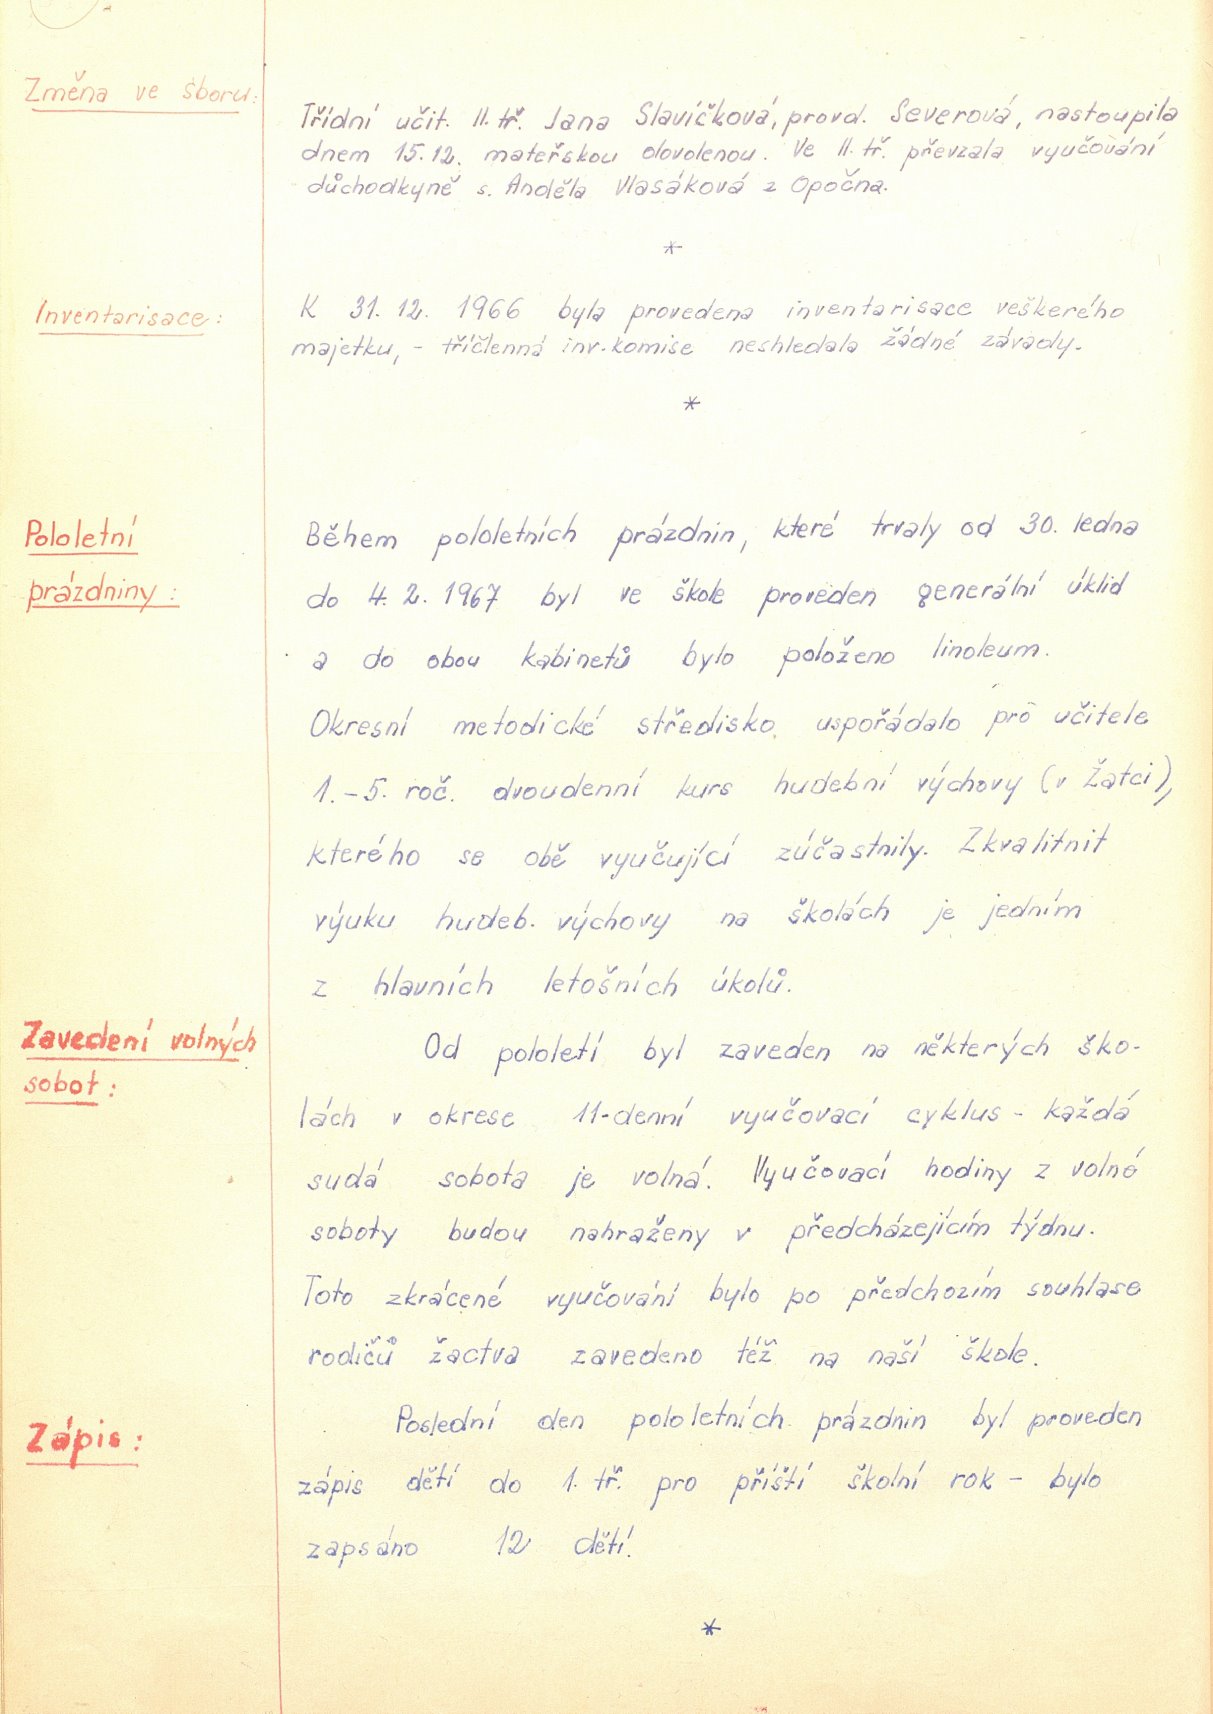 Změna ve sboru:
Třídní učit. II. tř. Jana Slavíčková, provd. Severová, nastoupila
dnem 15. 12. mateřskou dovolenou. Ve II. tř. převzala vyučování
důchodkyně s. Anděla Vlasáková z Opočna.
*
Inventarisace:
K 31. 12. 1966 byla provedena inventarisace veškerého
majetku, - tříčlenná inv. komise neshledala žádné závady.
*
Pololetní
prázdniny:
Během pololetních prázdnin, které trvaly od 30. ledna
do 4. 2. 1967 byl ve škole proveden generální úklid
a do obou kabinetů bylo položeno linoleum.
Okresní metodické středisko uspořádalo pro učitele
1. - 5. roč. dvoudenní kurs hudební výchovy (v Žatci),
kterého se obě vyučující zúčastnily. Zkvalitnit
výuku hudeb. výchovy na školách je jedním
z hlavních letošních úkolů.
Zavedení volných
sobot:
Od pololetí byl zaveden na některých ško-
lách v okrese 11-denní vyučovací cyklus - každá
sudá sobota je volná. Vyučovací hodiny z volné
soboty budou nahraženy v předcházejícím týdnu.
Toto zkrácené vyučování bylo po předchozím souhlase
rodičů žactva zavedeno též na naší škole.
Zápis:
Poslední den pololetních prázdnin byl proveden
zápis dětí do 1. tř. pro příští školní rok - bylo
zapsáno 12 dětí.
*